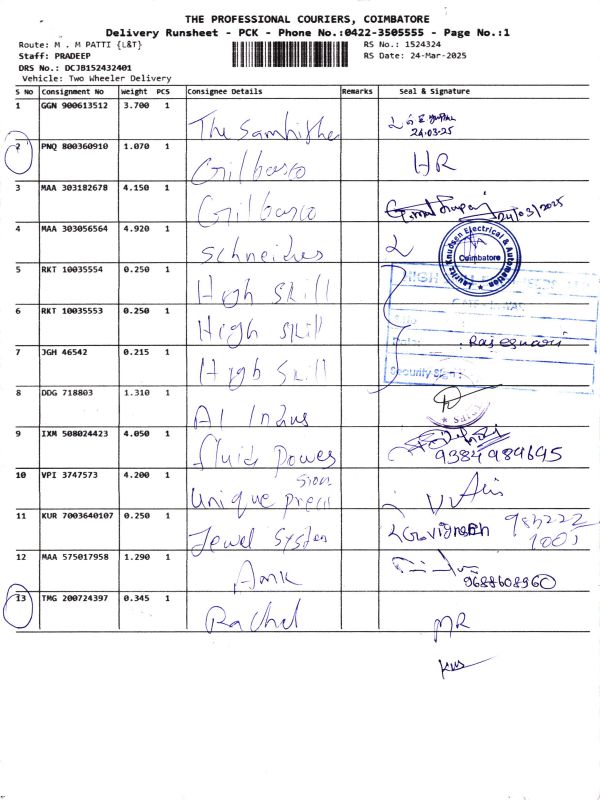 THE PROFESSIONAL COURIERS, COIMBATORE
Delivery Runsheet - PCK - Phone No.:0422-3505555 - Page No.:1
Route: M . M PATTI {L&T} RS No.: 1524324
Staff: PRADEEP RS Date: 24-Mar-2025
DRS No.: DCJB152432401
Vehicle: Two Wheeler Delivery
S No Consignment No Weight PCS Consignee Details Remarks Seal & Signature
1 GGN 900613512 3.700 1 The Samhithe 24.03.25
2 PNQ 800360910 1.070 1 Gilbasco HR
3 MAA 303182678 4.150 1 Gilbasco 24/03/2025
4 MAA 303056564 4.920 1 Schneider
Lauritz Knudsen Electrical & Automation
Coimbatore
5 RKT 10035554 0.250 1 High Skill
6 RKT 10035553 0.250 1 High Skill
7 JGH 46542 0.215 1 High Skill Rajeswari
Security Sign :
8 DDG 718803 1.310 1 Al Indus
9 IXM 508024423 4.050 1 fluid Power 9384989695
10 VPI 3747573 4.200 1 Unique Precision
11 KUR 7003640107 0.250 1 Jewel System
12 MAA 575017958 1.290 1 Amk 9688608960
13 TMG 200724397 0.345 1 Rachel MR